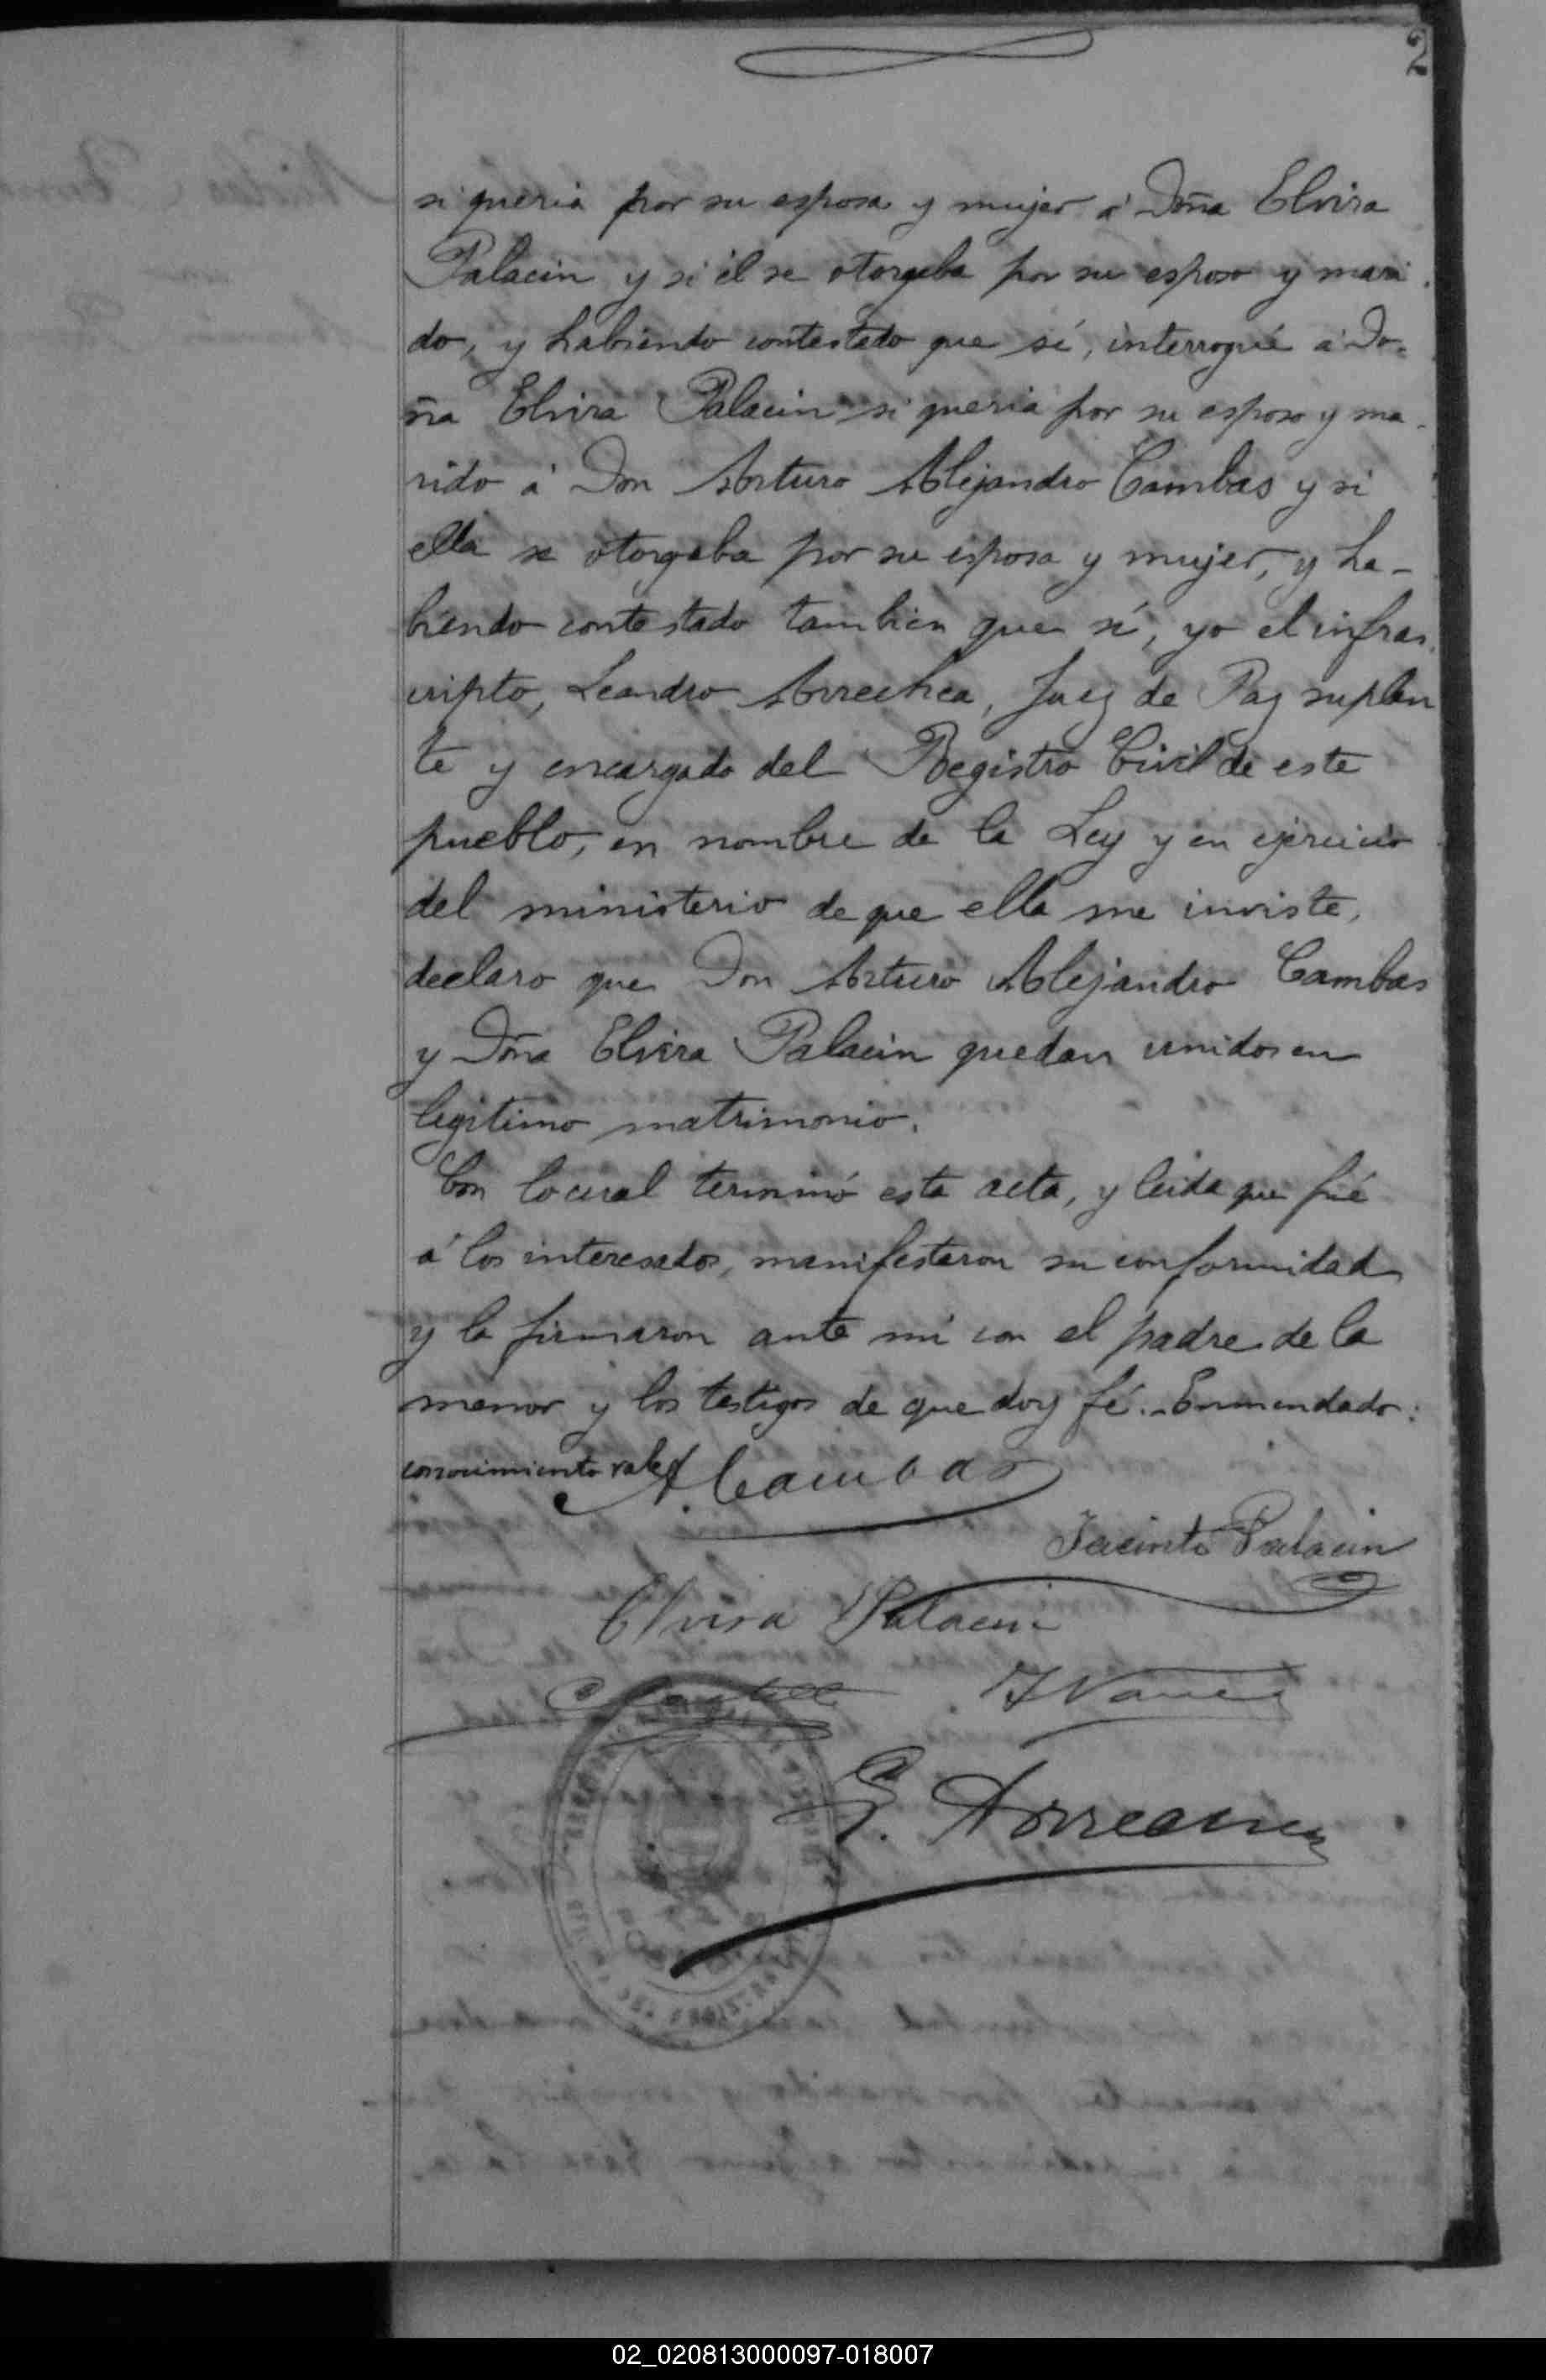 2
si queria por su esposa y mujer á Doña Elvira
Palacin y si él se otorgaba por su esposo y mari
do, y habiendo contestado que sí, interrogué á Do-
ña Elvira Palacin si queria por su esposo y ma-
rido á Don Arturo Alejandro Cambas y si
ella se otorgaba por su esposa y mujer, y ha-
biendo contestado tambien que sí, yo el infras
cripto, Leandro Arrechea, Juez de Paz suplen
te y encargado del Registro Civil de este
pueblo, en nombre de la Ley y en ejercicio
del ministerio de que ella me inviste,
declaro que Don Arturo Alejandro Cambas
y Doña Elvira Palacin quedan unidos en
legitimo matrimonio.
Con lo cual terminó esta acta, y leida que fué
á los interesados, manifestaron su conformidad
y la firmaron ante mí con el padre de la
menor y los testigos de que doy fé.- Enmendado:
conocimiento vale
A. Cambas
Jacinto Palacin
Elvira Palacin
02_020813000097-018007